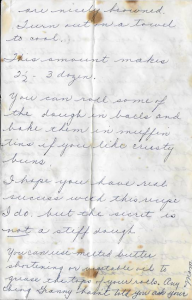 are nicely browned.
Turn out on a towel
to cool.
This amount makes
2½ - 3 dozen.
You can roll some of
the dough in balls and
bake them in muffin
tins if you like crusty
buns.
I hope you have real
success with this recipe
I do, but the secret is
not a stiff dough
You can use melted butter
shortening or vegetable oil to
grease the tops of your rolls. Any
thing Granny